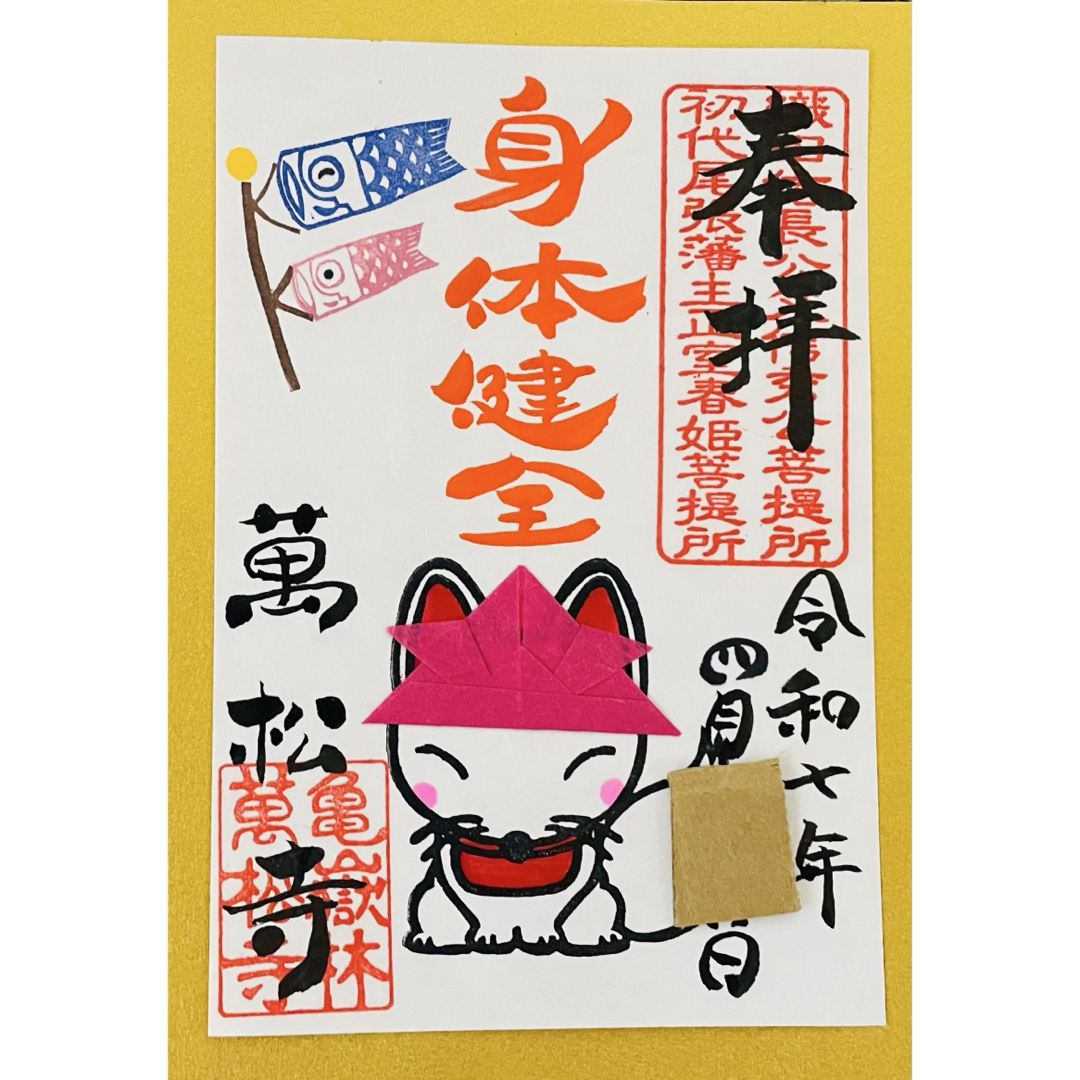 奉拝
織田信長公父信秀公菩提所
初代尾張藩主正室春姫菩提所
令和七年
四月 日
身体健全
萬松寺
亀嶽林
萬松寺